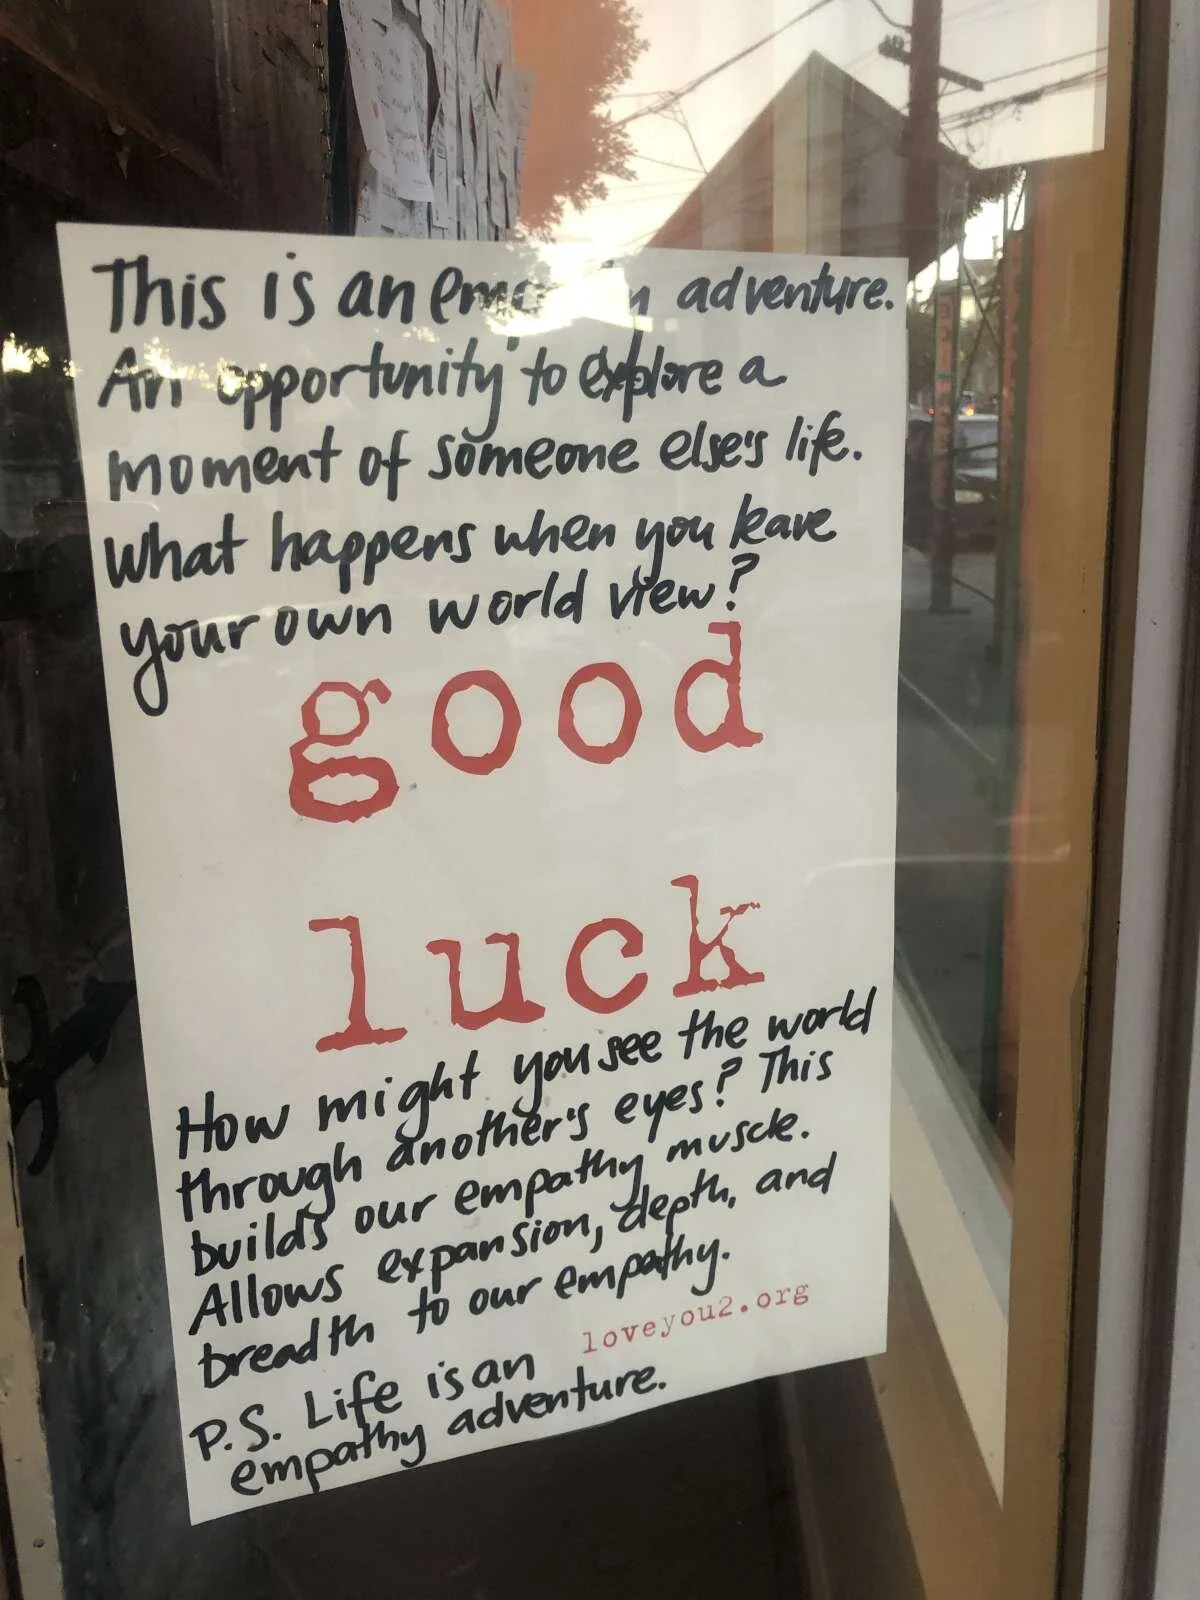 This is an adventure.
An opportunity to explore a
moment of someone else's life.
What happens when you leave
your own world view?
good
luck
How might you see the world
through another's eyes? This
builds our empathy muscle.
Allows expansion, depth, and
breadth to our empathy.
loveyou2.org
P.S. Life is an
empathy adventure.